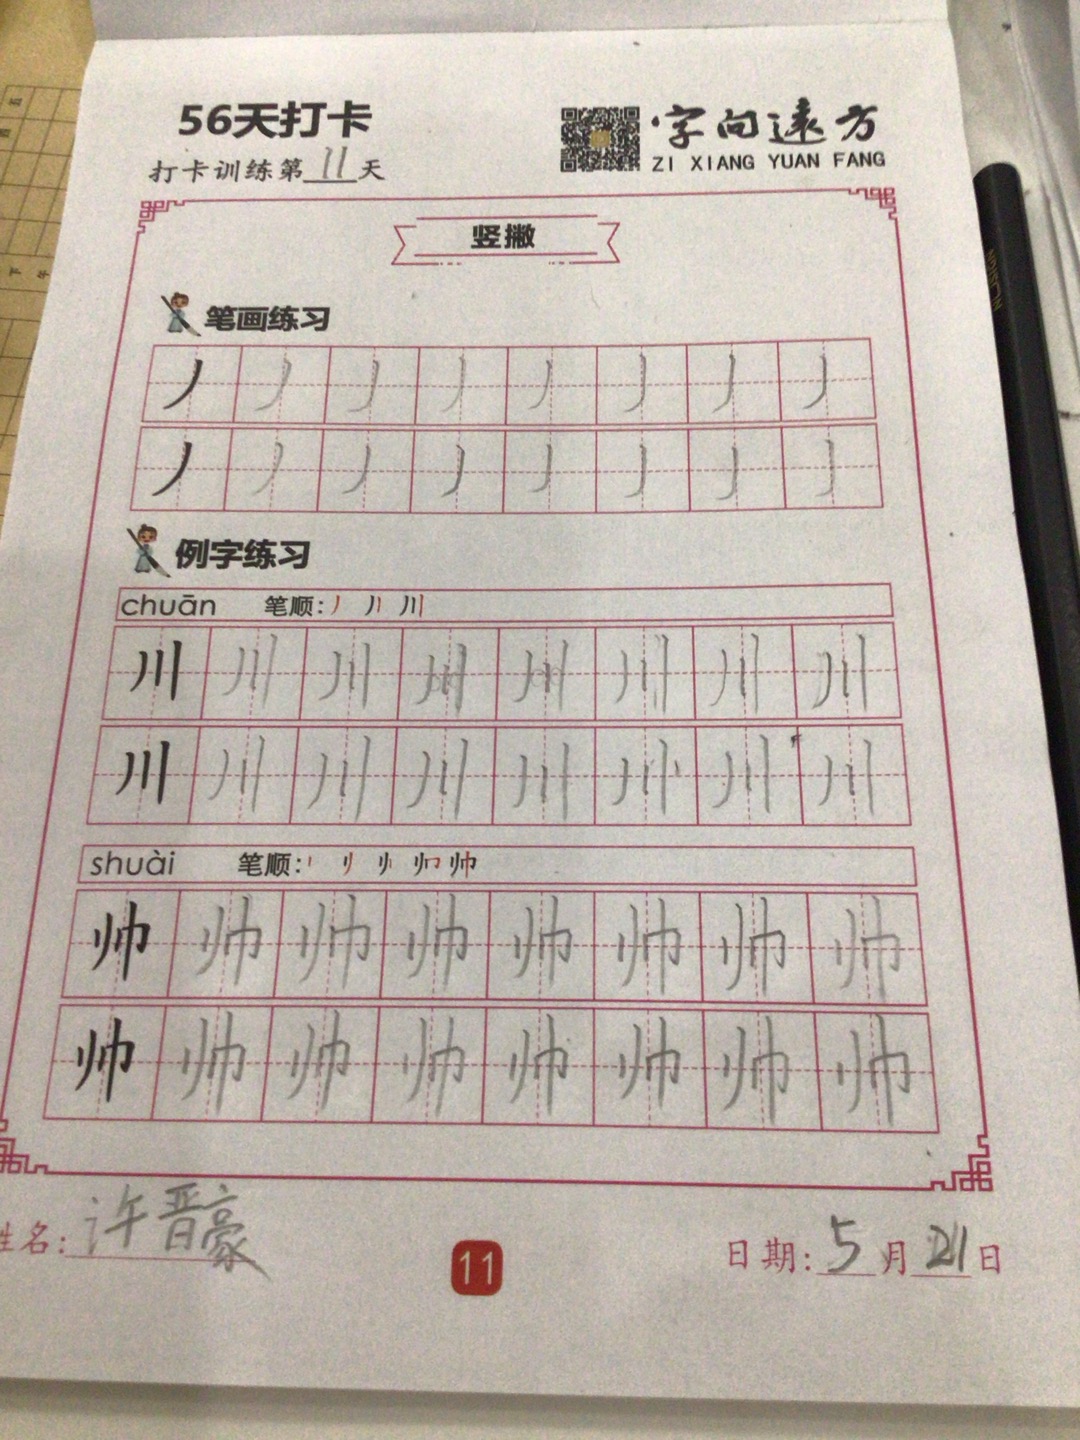 56天打卡
字向遠方
打卡训练第11天
ZI XIANG YUAN FANG
竖撇
笔画练习
丿 丿 丿 丿 丿 丿 丿 丿
丿 丿 丿 丿 丿 丿 丿 丿
例字练习
chuān 笔顺: 丿 丿丨 川
川 川 川 川 川 川 川 川
川 川 川 川 川 川 川 川
shuài 笔顺: 帅
帅 帅 帅 帅 帅 帅 帅 帅
帅 帅 帅 帅 帅 帅 帅 帅
姓名: 许晋豪
11
日期: 5月21日